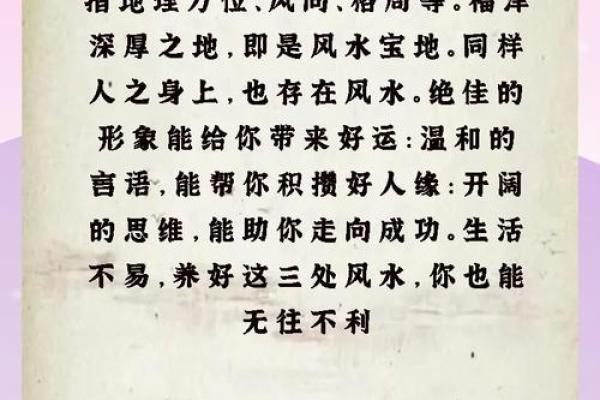 指地理方位、风向、格局等。福泽
深厚之地,即是风水宝地。同样
人之身上,也存在风水。绝佳的
形象能给你带来好运:温和的
言语,能帮你积攒好人缘:开阔
的思维,能助你走向成功。生活
不易,养好这三处风水,你也能
无往不利